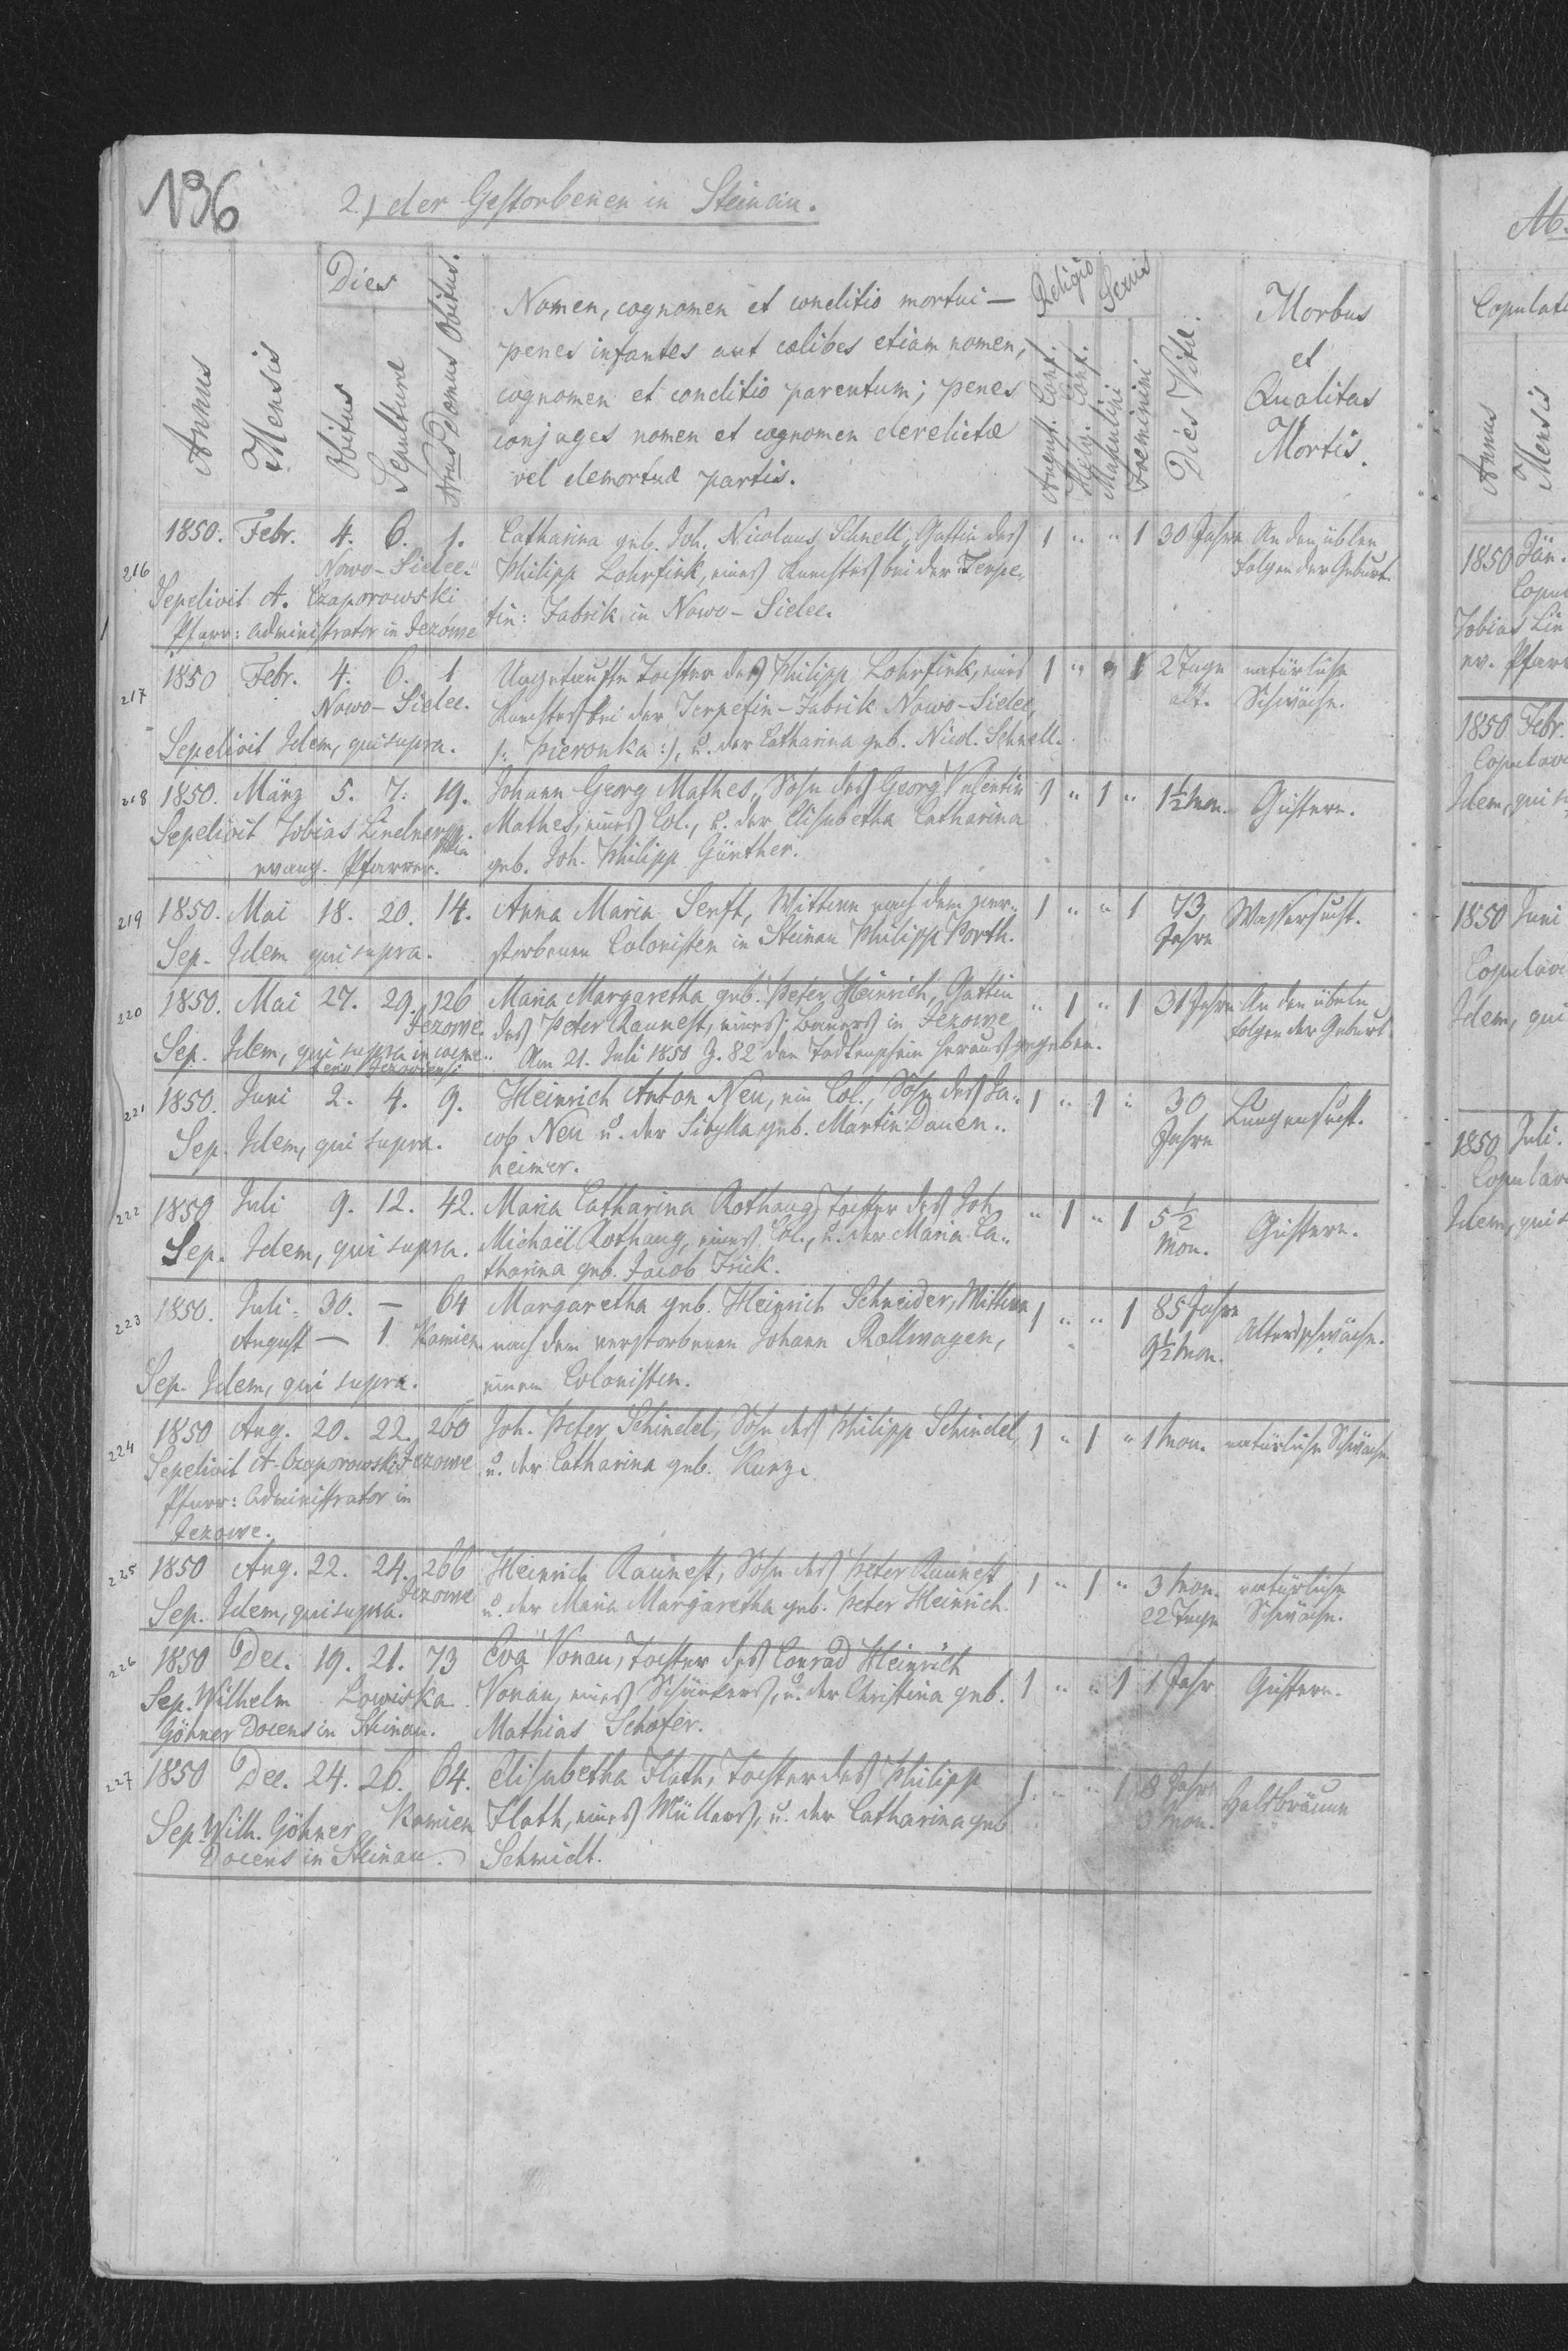 136
2.) der Gestorbenen in Steinau.
Annus
Mensis
Dies
Obitus
Sepulturæ
Nrus Domus Obitus.
Nomen, cognomen et conditio mortui —
penes infantes aut cœlibes etiam nomen,
cognomen et conditio parentum; penes
conjuges nomen et cognomen derelictæ
vel demortuæ partis.
Religio
August. Conf.
Helv. Conf.
Sexus
Masculini
Foeminini
Dies Vitæ.
Morbus
et
Qualitas
Mortis.
216 1850. Febr. 4. 6. 1. Catharina geb. Joh. Nicolaus Schnell, Gattin des 1 " " 1 30 Jahre An den üblen
Nowo-Sielec. Philipp Lohrfink, eines bei der Terpe- Folgen der Geburt.
Sepelivit A. Czaporowski tin: Fabrik in Nowo-Sielec.
Pfarr: Administrator in Jezowe
217 1850 Febr. 4. 6. 1 Ungetaufte Tochter des Philipp Lohrfink, eines 1 " " 1 2 Tage natürliche
Nowo-Sielec. bei der Terpetin-Fabrik Nowo-Sielec, alt. Schwäche.
Sepelivit Idem, qui supra. /: Pieronka :/, u. der Catharina geb. Nicol. Schnell.
218 1850. März 5. 7. 19. Johann Georg Mathes, Sohn des Georg Valentin 1 " 1 " 1½ Mon. Gichtern.
Sepelivit Tobias Lindner Mathes, eines Col., u. der Elisabetha Catharina
evang. Pfarrer. geb. Joh. Philipp Günther.
219 1850. Mai 18. 20. 14. Anna Maria Senft, Wittwe nach dem ver- 1 " " 1 73 Wassersucht.
Sep. Idem qui supra. storbenen Colonisten in Steinau Philipp Porth. Jahre
220 1850. Mai 27. 29. 126 Maria Margaretha geb. Peter Heinrich, Gattin " 1 " 1 31 Jahre An den übeln
Jezowe. des Peter Raunest, eines Bauers in Jezowe Folgen der Geburt.
Sep. Idem, qui supra in coeme- Am 21. Juli 1850 Z. 82 den Todtenschein herausgegeben.
terio Jezoviensi
221 1850. Juni 2. 4. 9. Heinrich Anton Neu, ein Col., Sohn des Ja- 1 " 1 " 30 Lungensucht.
Sep. Idem, qui supra. cob Neu u. der Sibylla geb. Martin Dauen- Jahre
heimer.
222 1850 Juli 9. 12. 42. Maria Catharina Rothaug, Tochter des Joh. " 1 " 1 5½ Gichtern.
Sep. Idem, qui supra. Michaël Rothaug, eines Col., u. der Maria Ca- Mon.
tharina geb. Jacob Frick.
223 1850. Juli. 30. — 64 Margaretha geb. Heinrich Schneider, Wittwe 1 " " 1 85 Jahre Altersschwäche.
August — 1 Kamien. nach dem verstorbenen Johann Rollwagen, 9½ Mon.
Sep. Idem, qui supra. einem Colonisten.
224 1850 Aug. 20. 22. 260 Joh. Peter Schindel, Sohn des Philipp Schindel, 1 " 1 " 1 Mon. natürliche Schwäche
Sepelivit A. Czaporowski Jezowe u. der Catharina geb. Kunz.
Pfarr: Administrator in
Jezowe.
225 1850 Aug. 22. 24. 266 Heinrich Raunest, Sohn des Peter Raunest 1 " 1 " 3 Mon. natürliche
Sep. Idem, qui supra. Jezowe u. der Maria Margaretha geb. Peter Heinrich. 22 Tage Schwäche.
226 1850 Dec. 19. 21. 73 Eva Vonau, Tochter des Conrad Heinrich
Sep. Wilhelm Lowiska Vonau, eines Schänkers, u. der Christina geb. 1 " " 1 1 Jahr Gichtern.
Göhner Docens in Steinau. Mathias Schäfer.
227 1850 Dec. 24. 26. 64. Elisabetha Flath, Tochter des Philipp 1 " " 1 8 Jahre Halsbräune
Sep. Wilh. Göhner Kamien Flath, eines Müllers, u. der Catharina geb. 3 Mon.
Docens in Steinau. Schmidt.
Copulati
Annus
Mensis
1850 Jän.
Tobias Lin
ev. Pfarr
1850 Febr.
Idem, qui
1850 Juni
Idem, qui
1850 Juli.
Idem, qui s